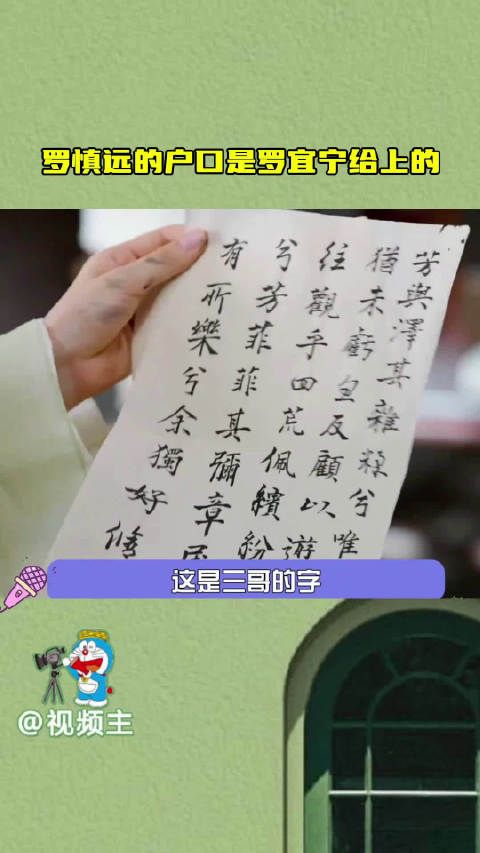 罗慎远的户口是罗宜宁给上的
芳與澤其雜糅兮唯
猶未虧忽反顧以遊
往觀乎四荒佩繽紛
兮芳菲菲其彌章民
有所樂兮余獨好脩
这是三哥的字
@视频主